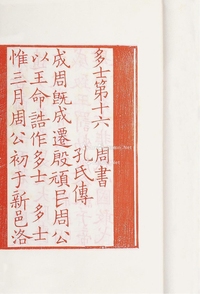 多士第十六　周書
孔氏傳
成周既成遷殷頑民周公
以王命誥作多士　多士
惟三月周公初于新邑洛